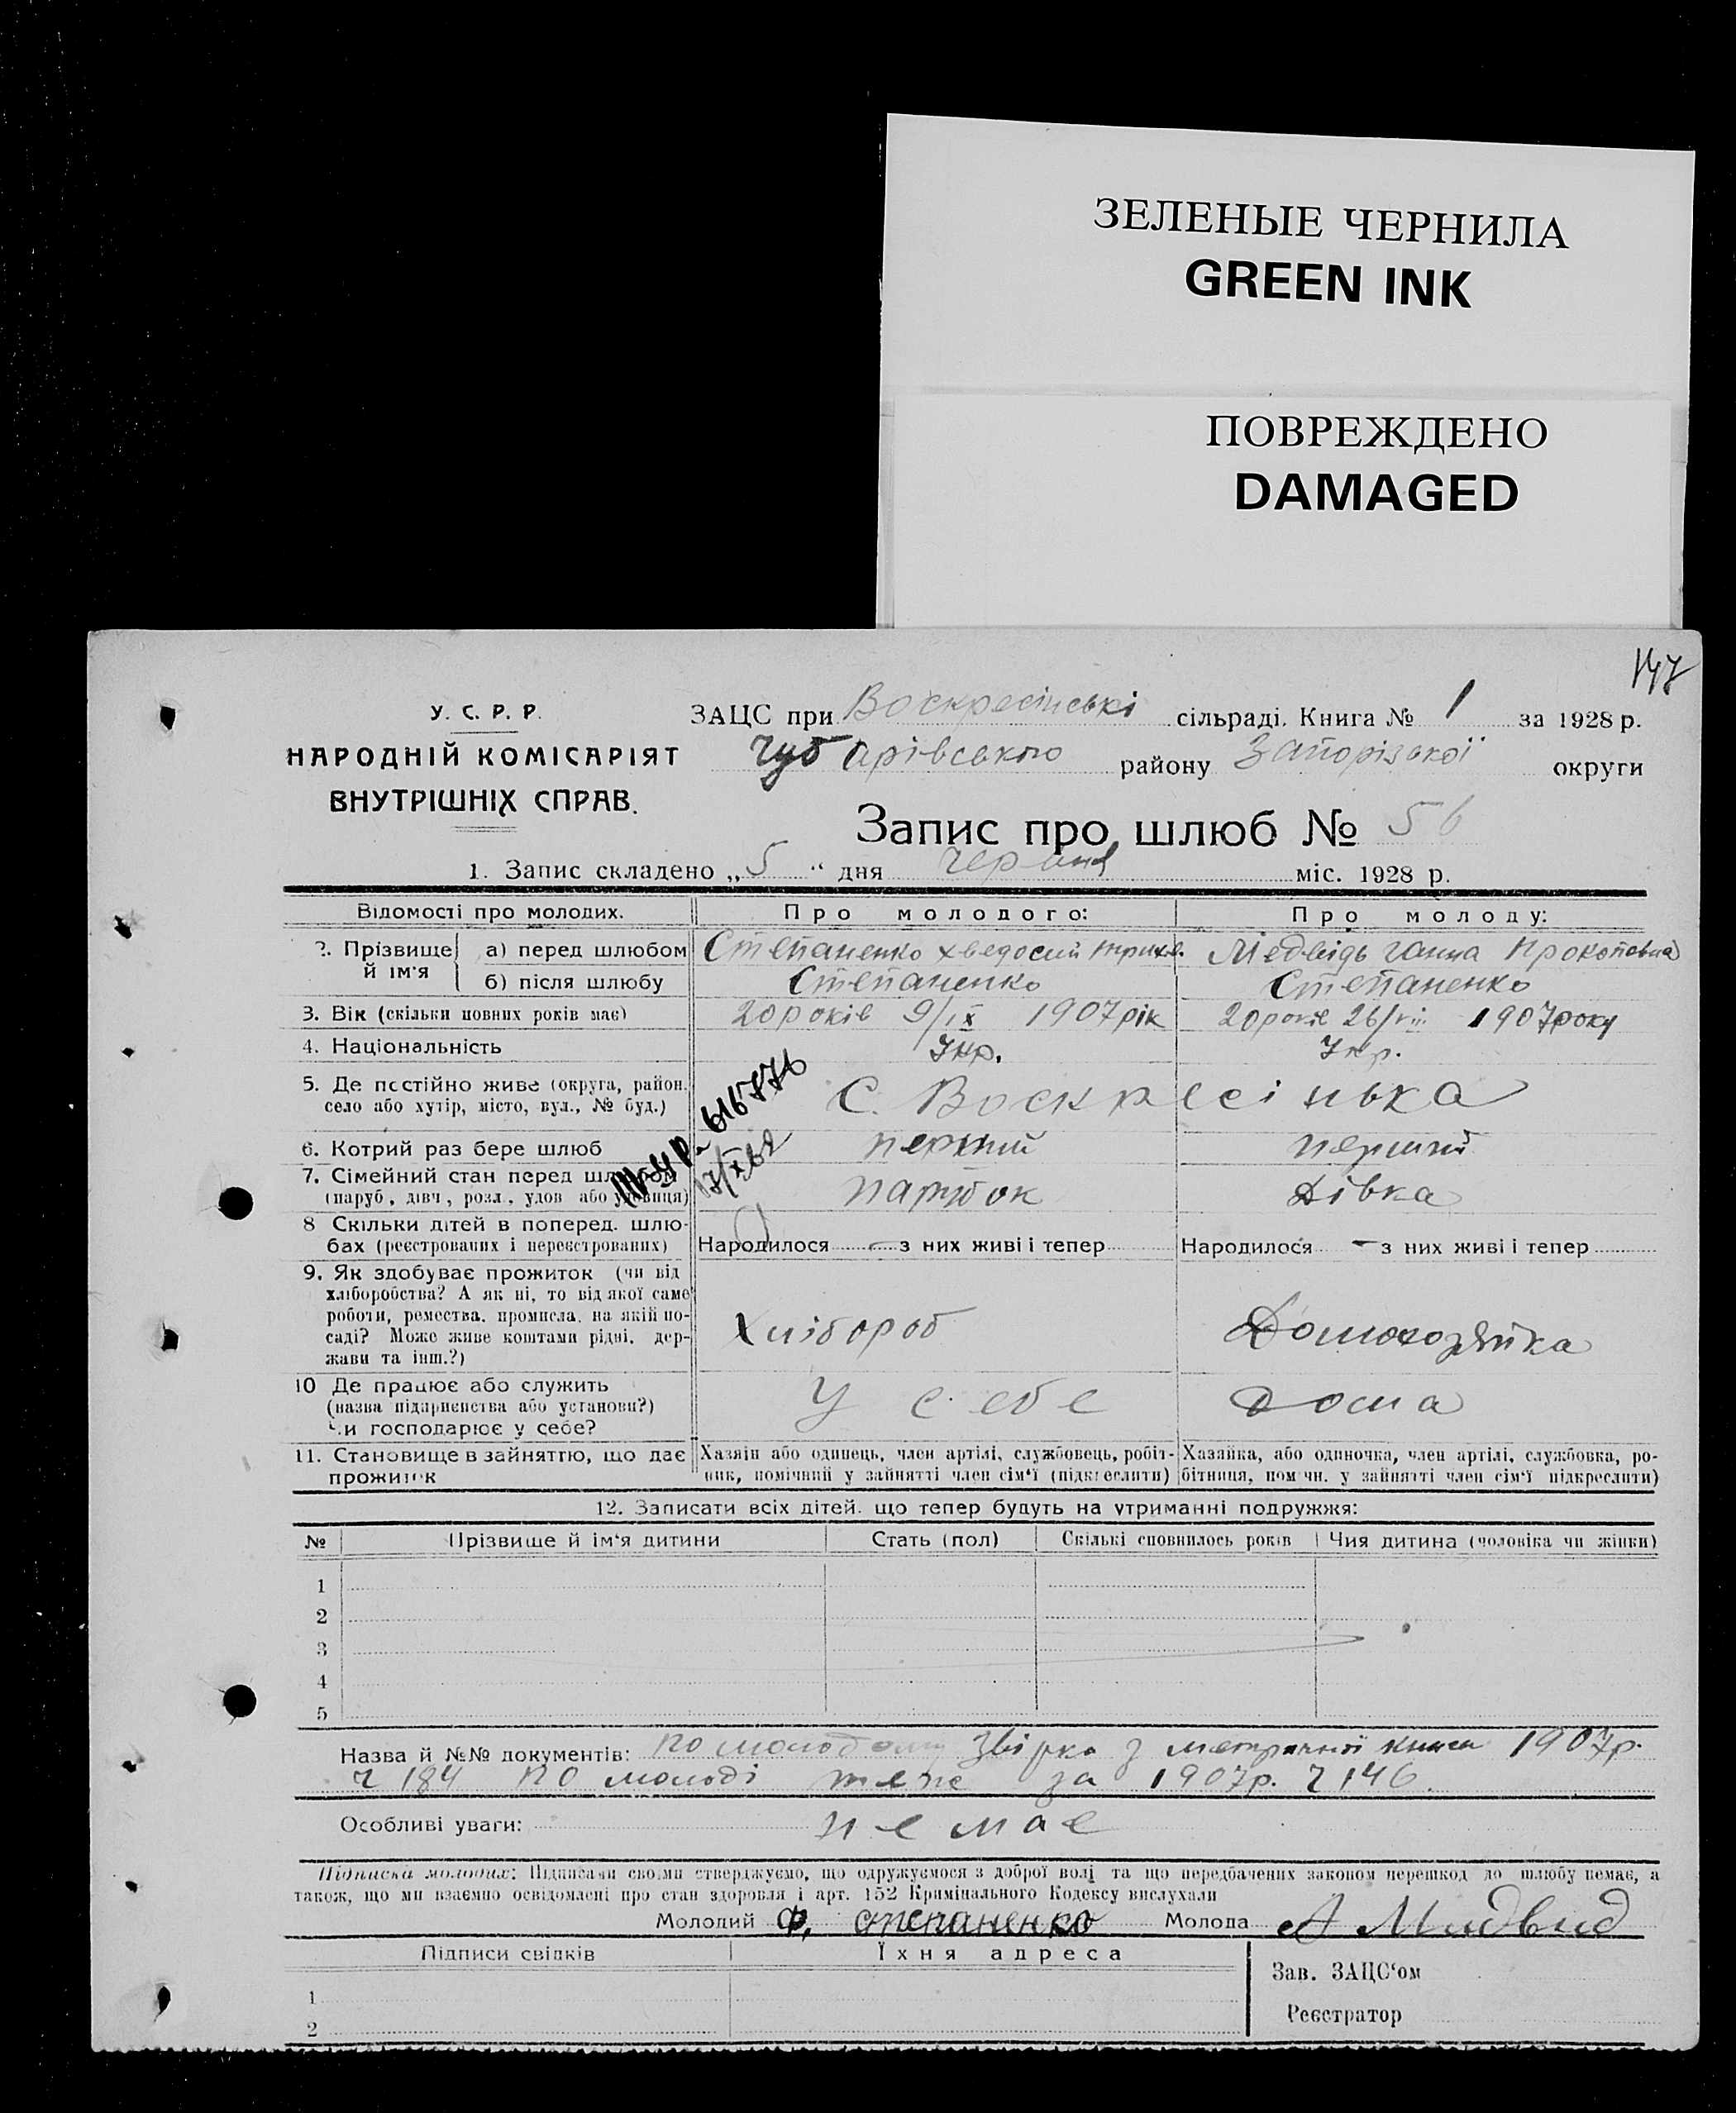 ЗЕЛЕНЫЕ ЧЕРНИЛА
GREEN INK
ПОВРЕЖДЕНО
DAMAGED
147
У. С. Р. Р.
НАРОДНІЙ КОМІСАРІЯТ
ВНУТРІШНІХ СПРАВ.
ЗАЦС при Воскресінські сільраді. Книга № 1 за 1928 р.
Чубарівського району Запорізької округи
Запис про шлюб № 56
1. Запис складено „5“ дня червня міс. 1928 р.
Відомості про молодих. Про молодого: Про молоду:
2. Прізвище й ім'я а) перед шлюбом Степаненко Хведосий Медвідь Ганна Прокоповна
б) після шлюбу Степаненко Степаненко
3. Вік (скільки повних років має) 20 років 9/ІХ 1907 рік 20 років 26/VIII 1907 року
4. Національність Укр. Укр.
5. Де постійно живе (округа, район, село або хутір, місто, вул., № буд.) С. Воскресінька
616776
17/X 62
6. Котрий раз бере шлюб перший перший
7. Сімейний стан перед шлюбом парубок Дівка
(паруб, дівч, розл., удов або удовиця)
8 Скільки дітей в поперед. шлю-
бах (реєстрованих і нереєстрованих) Народилося — з них живі і тепер Народилося — з них живі і тепер
9. Як здобуває прожиток (чи від
хліборобства? А як ні, то від якої саме
роботи, ремества, промисла, на якій по-
саді? Може живе коштами рідні, дер-
жави та інш.?) Хлібороб Домохозяйка
10 Де працює або служить
(назва підприємства або установи?)
Чи господарює у себе? У себе дома
11. Становище в зайняттю, що дає прожиток
Хазяїн або одинець, член артілі, службовець, робіт-
ник, помічний у зайнятті член сім'ї (підкреслити)
Хазяйка, або одиночка, член артілі, службовка, ро-
бітниця, помічн. у зайнятті член сім'ї підкреслити)
12. Записати всіх дітей, що тепер будуть на утриманні подружжя:
№ Прізвище й ім'я дитини Стать (пол) Скількі сповнилось років Чия дитина (чоловіка чи жінки)
1
2
3
4
5
Назва й №№ документів: По молодому звірка з метричної книги 1907р.
ч 184 По молоді теже за 1907р. ч 146.
Особливі уваги: немає
Підписка молодих: Підписами своїми стверджуємо, що одружуємося з доброї волі та що передбачених законом перешкод до шлюбу немає, а
також, що ми взаємно освідомлені про стан здоровля і арт. 152 Кримінального Кодексу вислухали
Молодий Ф. степаненко Молода А Мидвид
Підписи свідків Їхня адреса
Зав. ЗАЦС'ом
1
Реєстратор
2